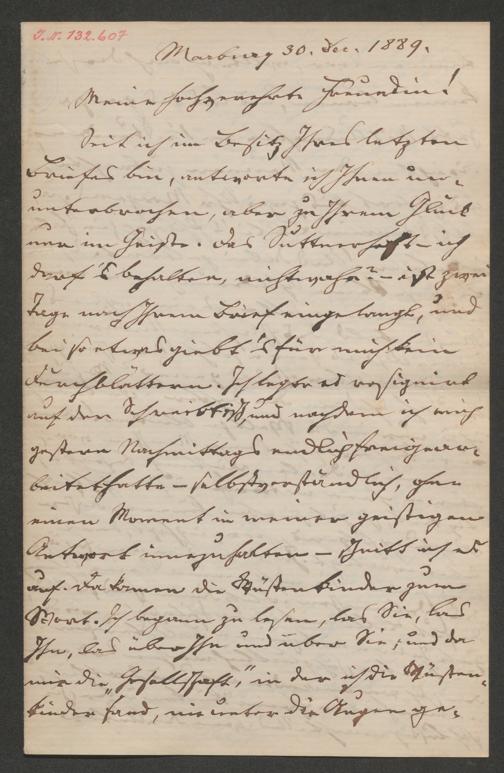 J.N. 132.607
Marburg 30. Dec. 1889.
Meine hochverehrte Freundin!
Seit ich im Besitz Ihres letzten
Briefes bin, antworte ich Ihnen un-
unterbrochen, aber zu Ihrem Glück
nur im Geiste. Das Suttnerheft – ich
darf's behalten, nichtwahr? – ist zwei
Tage nach Ihrem Brief eingelangt, und
bei so etwas giebt's für mich kein
Durchblättern. Ich legte es resignirt
auf den Schreibtisch, und nachdem ich mich
gestern Nachmittags endlich freigear-
beitet hatte – selbstverständlich, ohne
einen Moment in meiner geistigen
Antwort innezuhalten – schnitt ich es
auf. Da kamen die Wüstenkinder zum
Wort. Ich begann zu lesen, las Sie, las
Ihn, las über Ihn und über Sie; und da
mir die „Gesellschaft", in der ich die Wüsten-
kinder fand, nie unter die Augen ge-